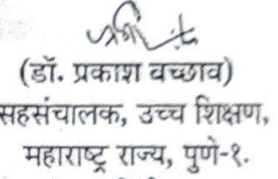 (डॉ. प्रकाश वच्छाव)
सहसंचालक, उच्च शिक्षण,
महाराष्ट्र राज्य, पुणे-१.